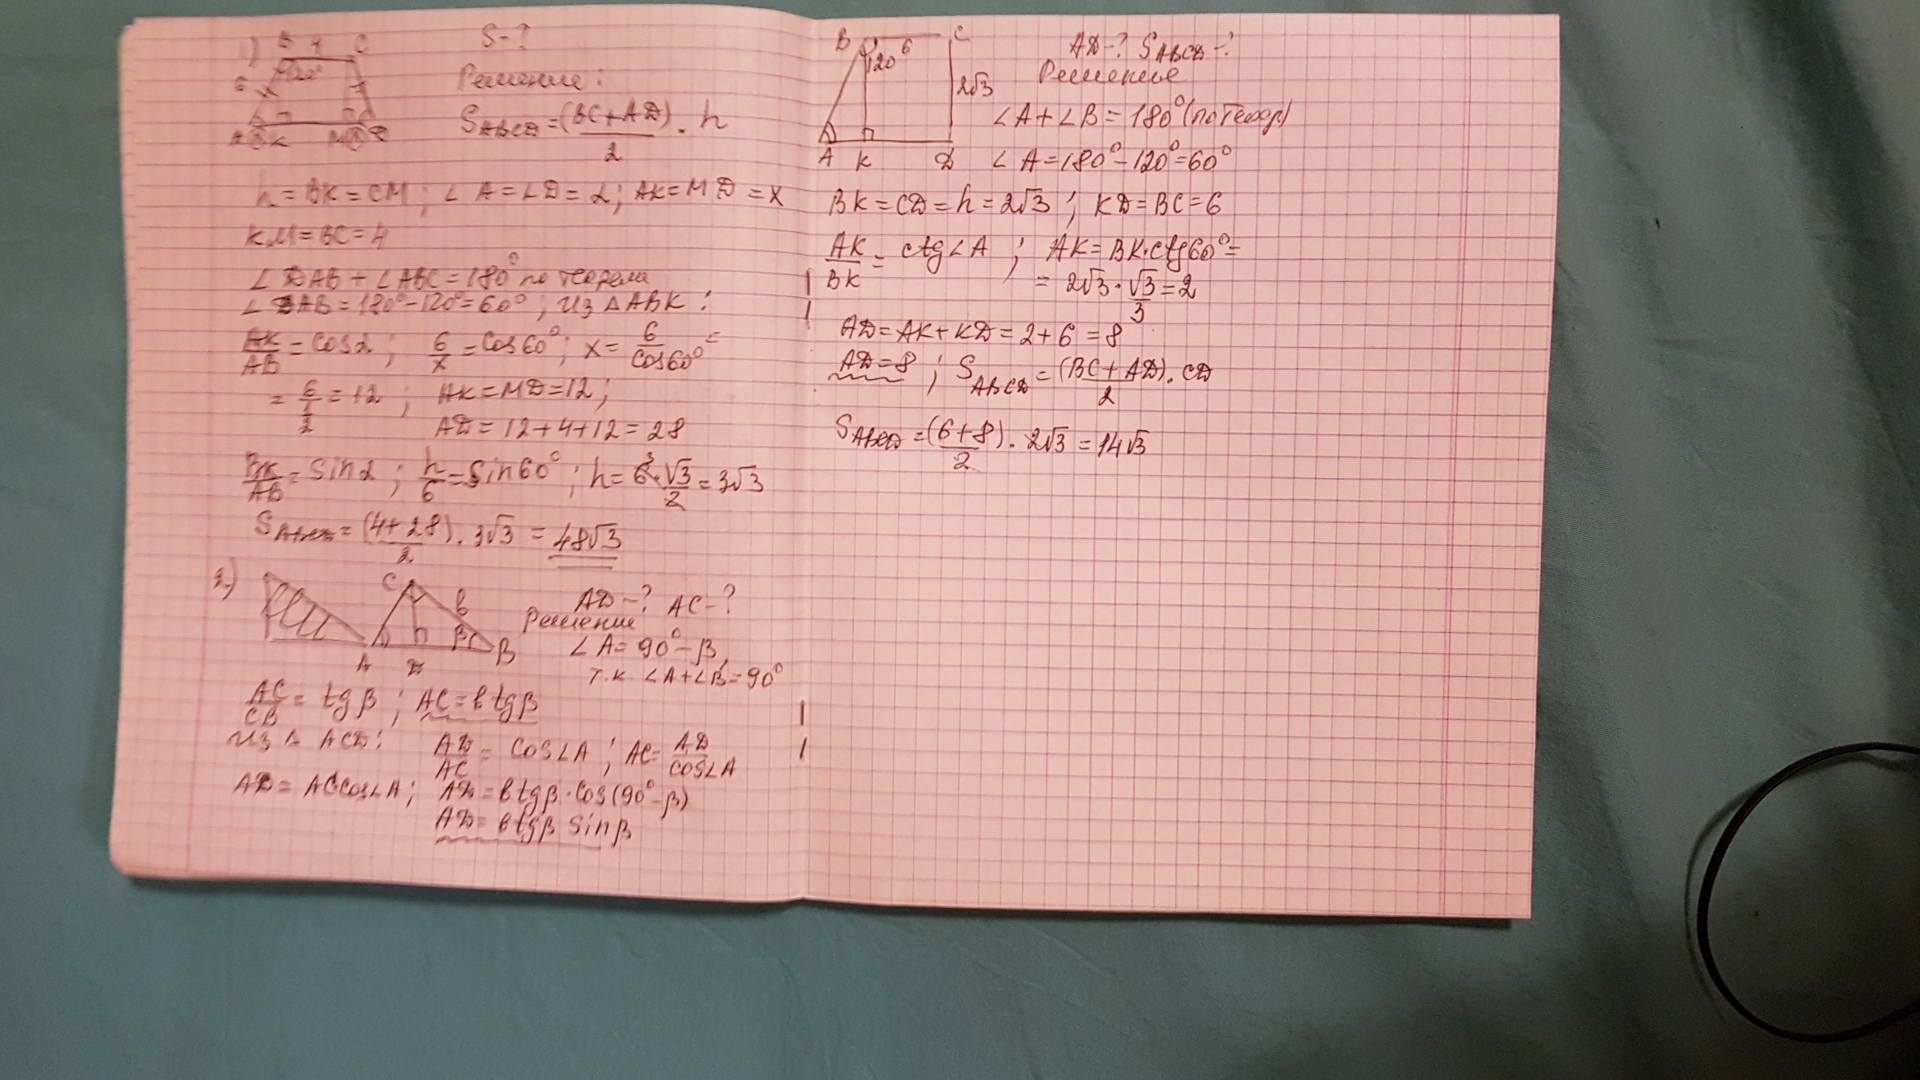 1)
B 4 C
120°
6
A K M D
S-?
Решение:
S ABCD = (BC+AD)/2 · h
h = BK = CM; ∠A = ∠D = α; AK = MD = x
KM = BC = 4
∠DAB + ∠ABC = 180° по теореме
∠DAB = 180° - 120° = 60°; из △ABK:
AK/AB = cosα; 6/x = cos60°; x = 6/cos60° =
= 6/(1/2) = 12; AK = MD = 12;
AD = 12+4+12 = 28
BK/AB = sinα; h/6 = sin60°; h = 6·√3/2 = 3√3
S ABCD = (4+28)/2 · 3√3 = 48√3
2)
C
b
β
A D B
AD-? AC-?
Решение
∠A = 90° - β,
т.к. ∠A+∠B = 90°
AC/CB = tgβ; AC = b tgβ
из △ ACD: AD/AC = cos∠A; AC = AD/cos∠A
AD = AC cos∠A; AD = b tgβ·cos(90°-β)
AD = b tgβ sinβ
B 6 C
120°
2√3
A K D
AD-? S ABCD-?
Решение
∠A+∠B = 180° (по теор)
∠A = 180° - 120° = 60°
BK = CD = h = 2√3; KD = BC = 6
AK/BK = ctg∠A; AK = BK·ctg60° =
= 2√3·√3/3 = 2
AD = AK + KD = 2+6 = 8
AD = 8; S ABCD = (BC+AD)/2 · CD
S ABCD = (6+8)/2 · 2√3 = 14√3